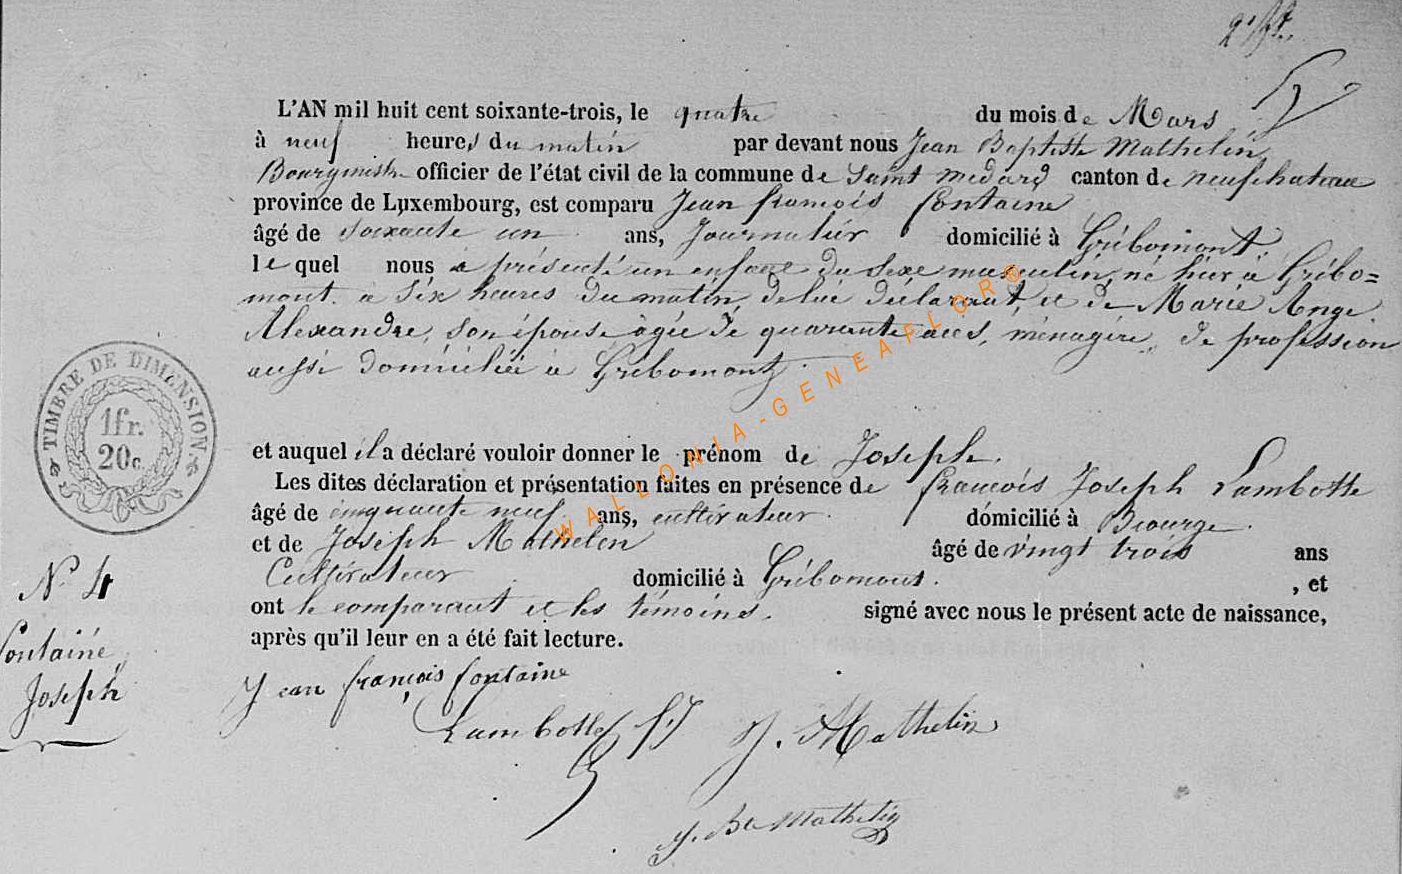 L'AN mil huit cent soixante-trois, le quatre du mois de Mars
à neuf heures du matin par devant nous Jean Baptiste Mathelin
Bourgmestre officier de l'état civil de la commune de Saint médard canton de neufchateau
province de Luxembourg, est comparu Jean françois fontaine
âgé de soixante un ans, Journalier domicilié à Grébomont
le quel nous a présenté un enfant du sexe masculin, né hier à Grébo=
mont à six heures du matin, de lui déclarant, et de Marie Ange
Alexandre, son épouse âgée de quarante ans, ménagère, de profession
aussi domiciliée à Grébomont
et auquel il a déclaré vouloir donner le prénom de Joseph.
Les dites déclaration et présentation faites en présence de françois Joseph Lambotte
âgé de cinquante neuf ans, cultivateur domicilié à Biourge.
et de Joseph Mathelin âgé de vingt trois ans
Cultivateur domicilié à Grébomont. , et
ont le comparant et les témoins, signé avec nous le présent acte de naissance,
après qu'il leur en a été fait lecture.
TIMBRE DE DIMENSION.
1fr.
20c.
N. 4
Fontaine
Joseph
Jean françois fontaine
Lambotte f.J J. Mathelin
J. Bte Mathelin
WALLONIA-GENEAFLORE